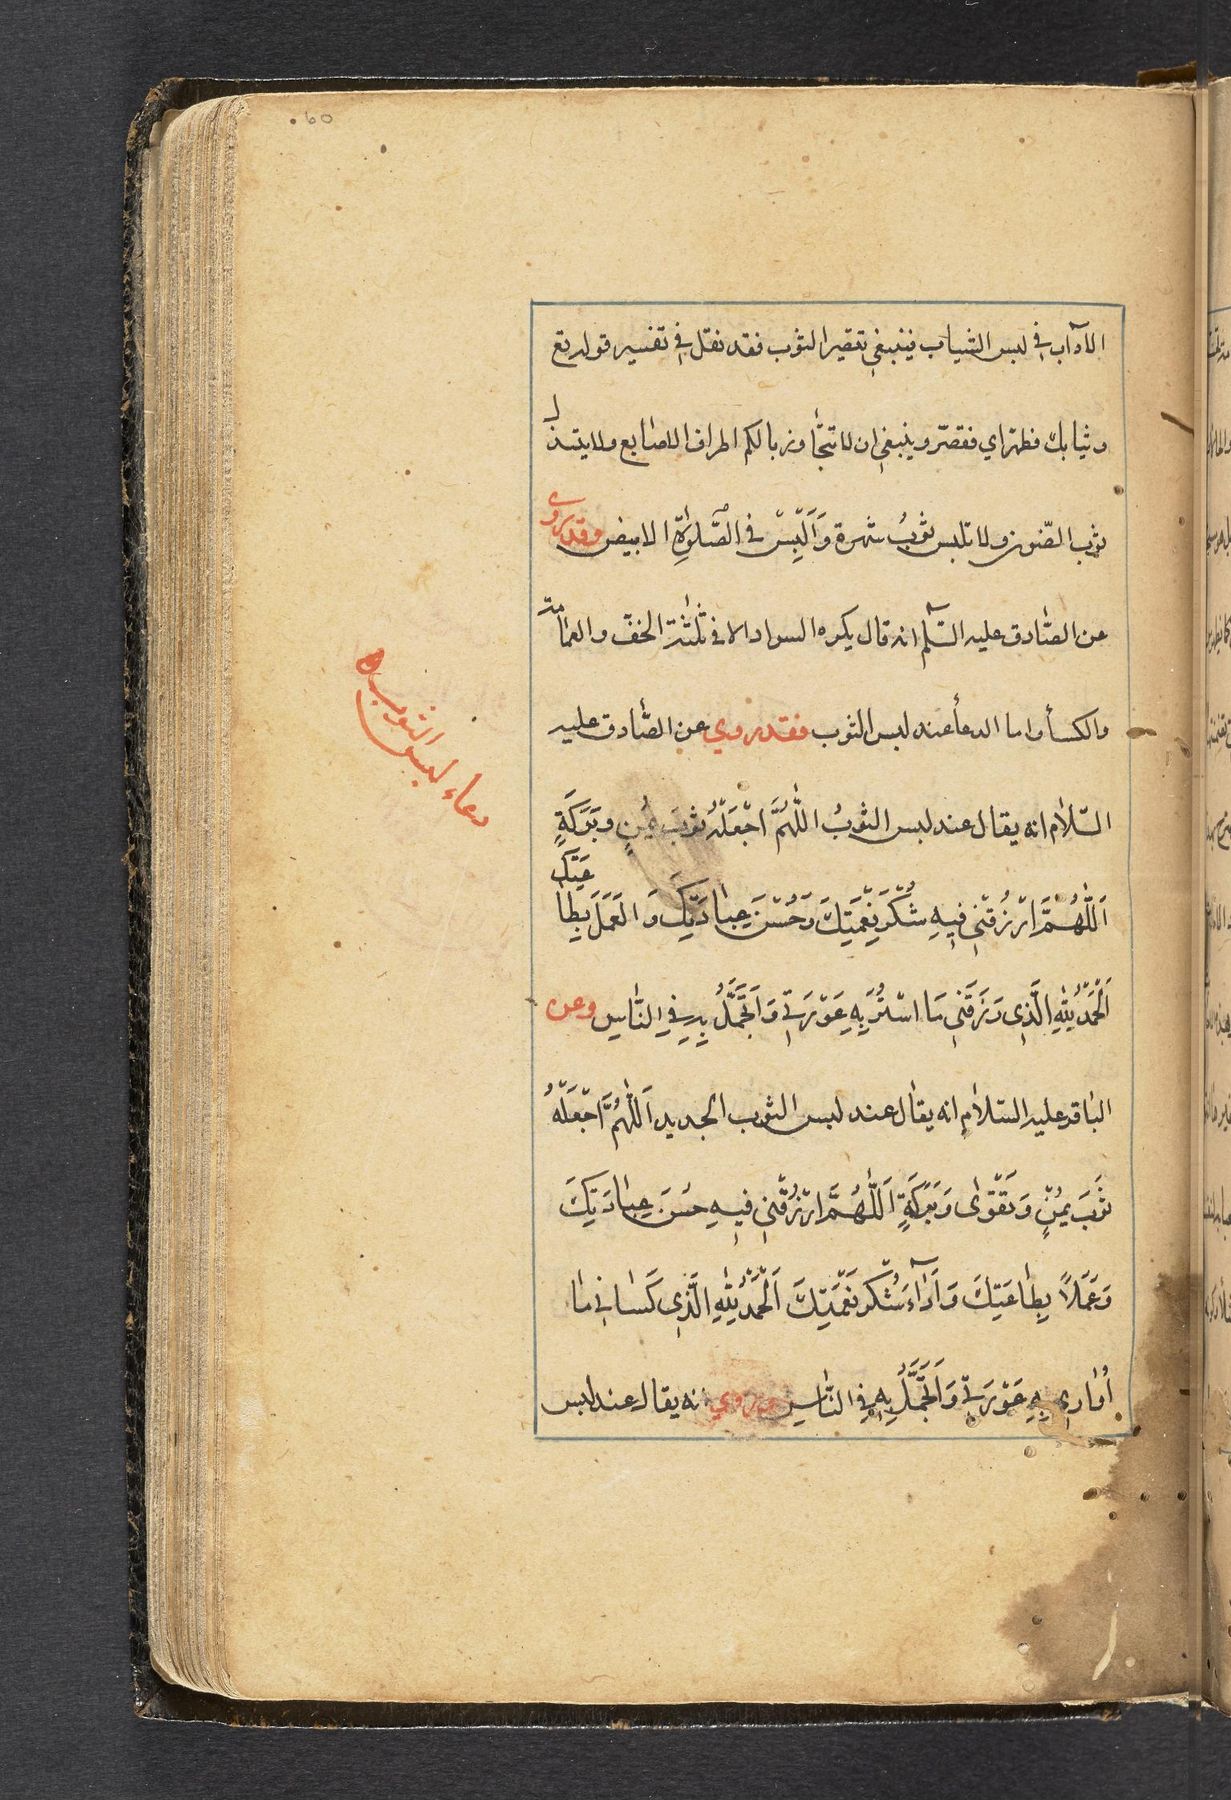 الاداب في لبس الثياب فينبغي تقصير الثوب فقد نقل في تفسير قوله تع
وثيابك فطهر اي فقصّر وينبغي ان لا تتجاوز بالكم اطراف الاصابع ولا يبتذل
ثوب الصّون ولا تلبس ثوبُ شهرة وَاَلبِسْ في الصَّلوٰةِ الابيض وقد روى
عن الصّادق عليه السّلم انه قال يكره السواد الا في ثلثة الخفّ والعمامة
والكسأ واما الدعأ عند لبس الثوب فقد روي عن الصّادق عليه
السّلام انه يقال عند لبس الثوبُ اللّٰهُمَّ اجْعَلْهُ ثوبَ يُمنٍ وبَرَكَةٍ
اَللّٰهُمَّ ارْزُقْنِي فِيهِ شُكْرَ نِعْمَتِكَ وَحُسْنَ عِبادَتِكَ وَالعَمَلَ بِطاعَتِكَ
اَلْحَمْدُ لِلّٰهِ الَّذِي رَزَقَنِي مَا اسْتُرُ بِهِ عَوْرَتي وَاَتَجَمَّلُ بِهِ فِي النّاسِ وعن
الباقر عليه السّلامِ انه يقال عند لبس الثوب الجديد اَللّٰهُمَّ اجْعَلْهُ
ثَوبَ يُمْنٍ وَتَقْوٰى وَبَرَكَةٍ اَللّٰهُمَّ ارْزُقْنِي فِيهِ حُسْنَ عِبادَتِكَ
وَعَمَلاً بِطاعَتِكَ وَاَدَاءَ شُكْرِ نِعْمَتِكَ اَلْحَمْدُ لِلّٰهِ الَّذِي كَسانِي ما
اُوارِي بِهِ عَوْرَتِي وَاَتَجَمَّلُ بِهِ فِي النّاسِ وروي انه يقال عند لبس
دعاء لبس الثوب